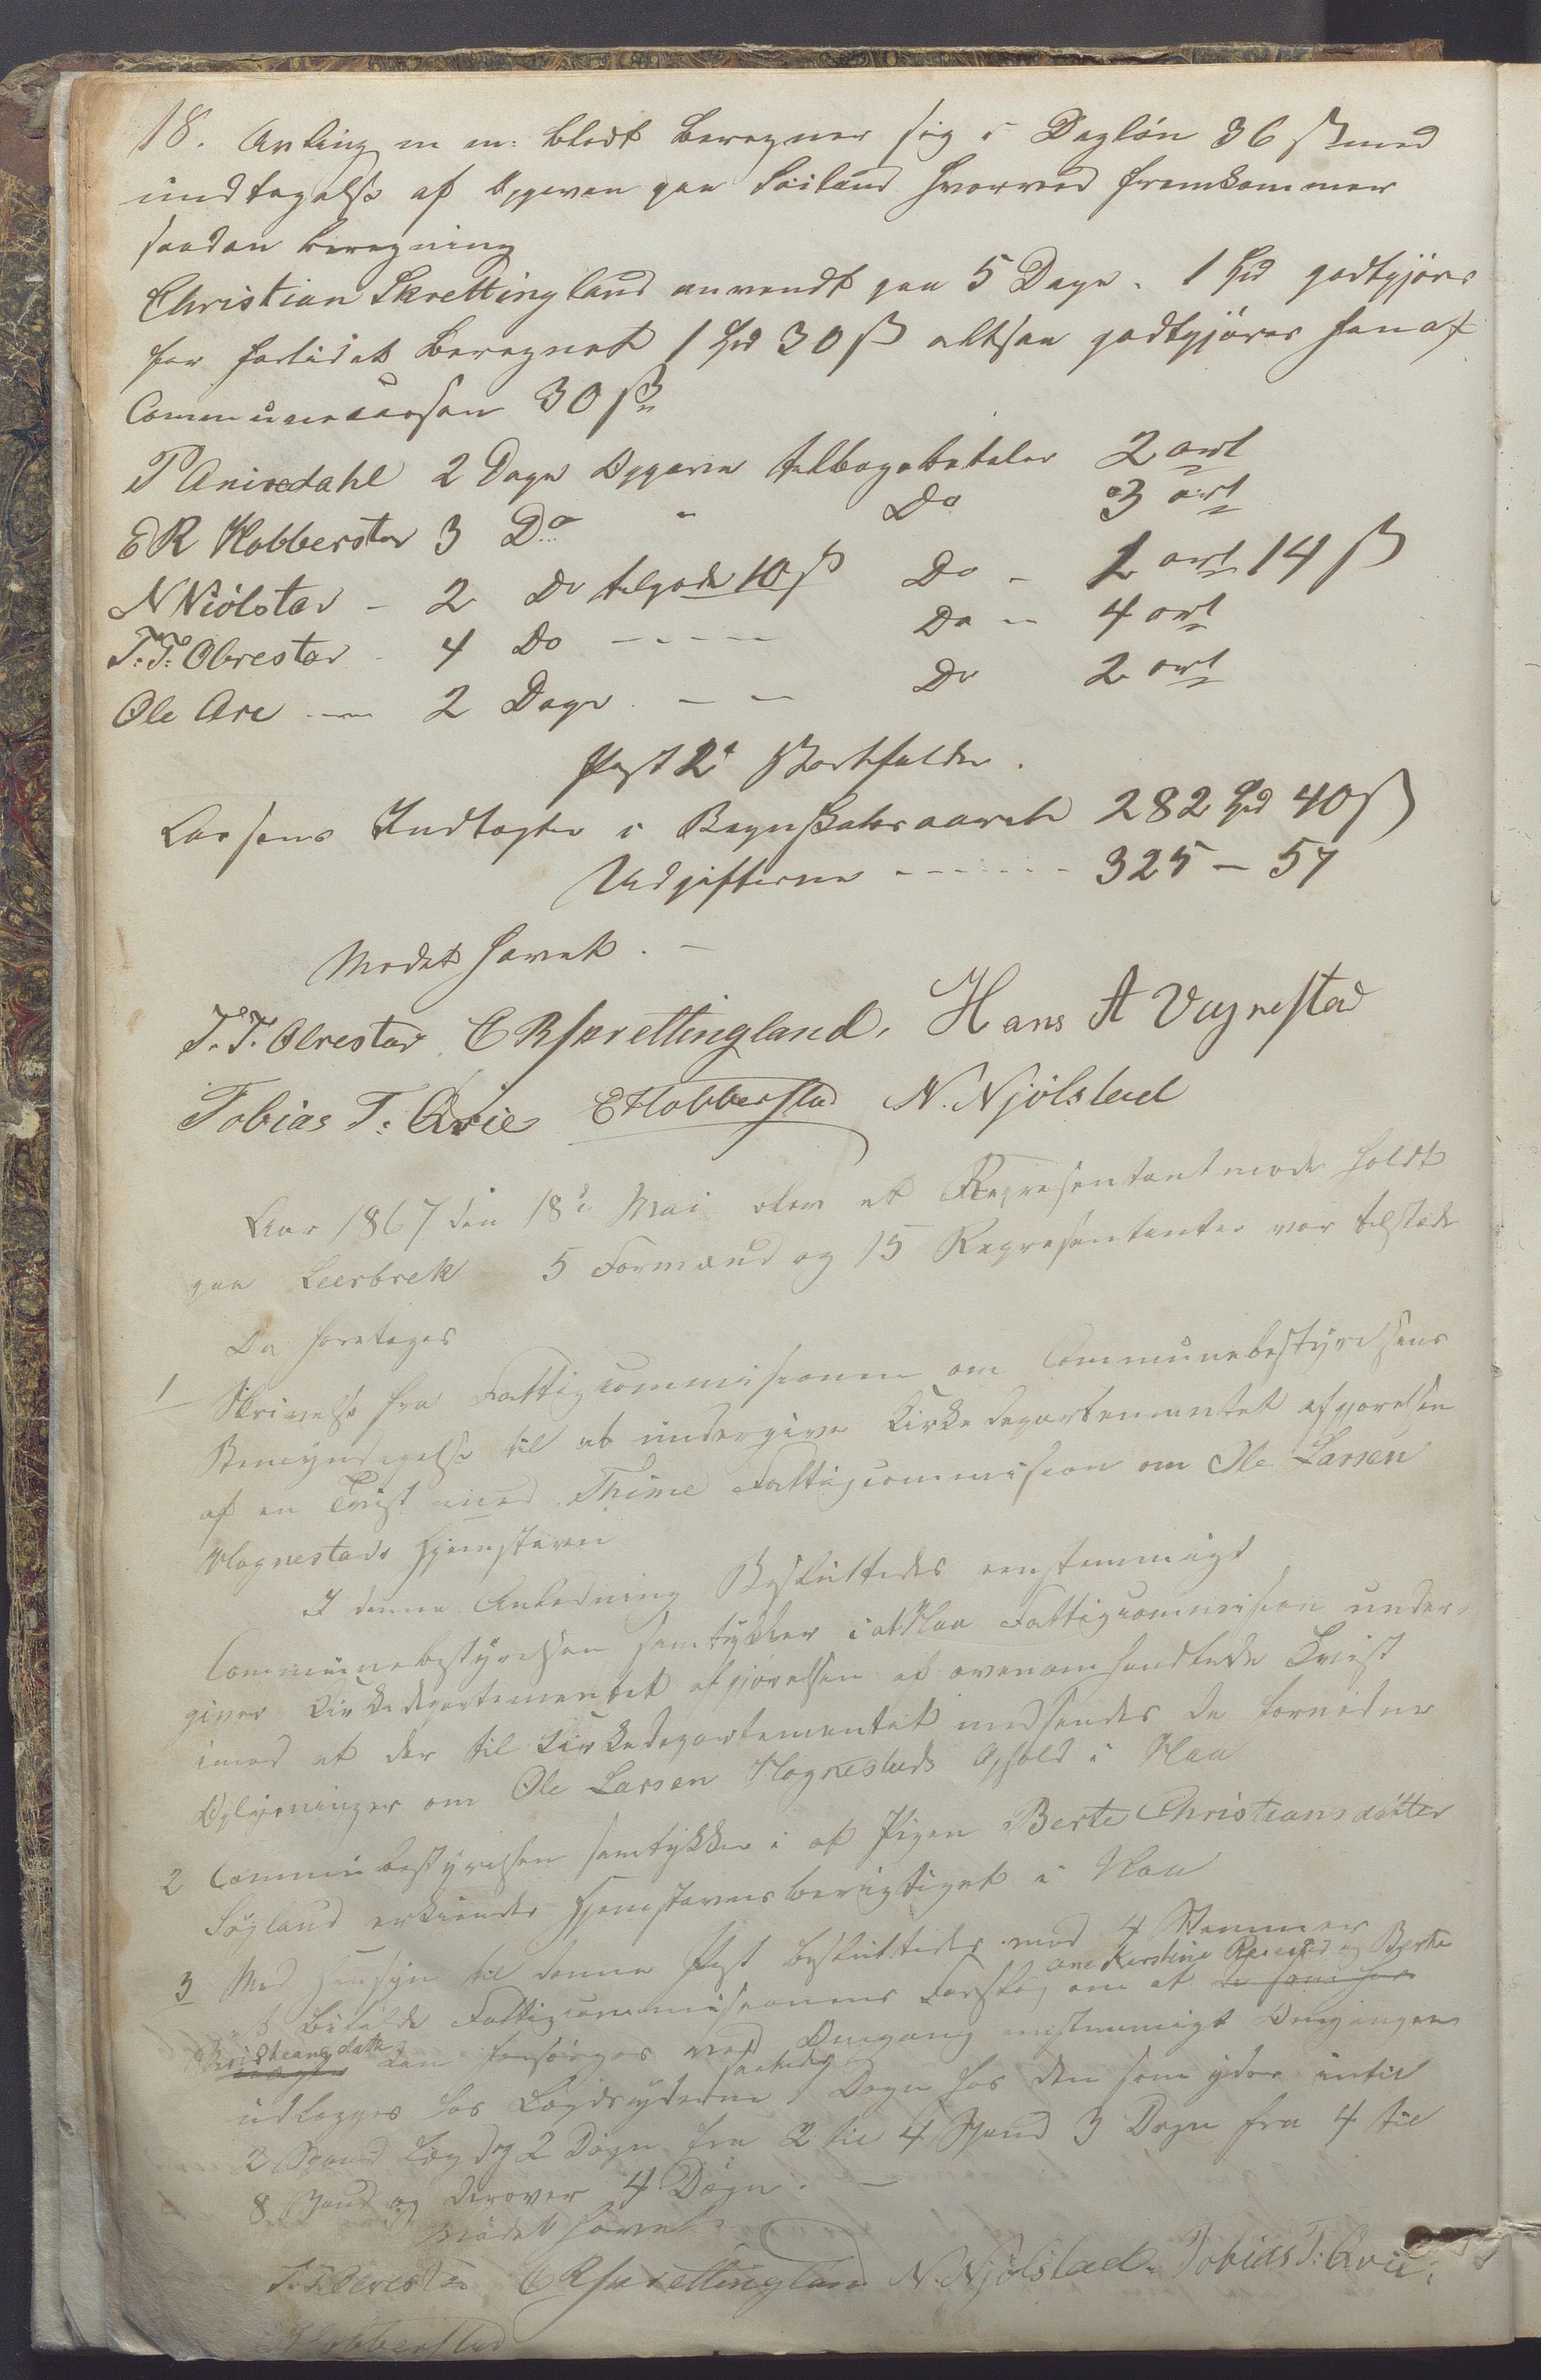 18. Anlæg m m: blodt beregner sig i Dagløn 36 ß med
undtagelse af Opgaven paa Loiland hvorved fremkommer
saadan beregning
Christian Skrettingland anvendt paa 5 Dage. 1 Spd godtgjøres
for forlidet beregnet 1 Spd 30 ß altsaa godtgjøres han af
Communecassen 30 ß
P Aniksdahl 2 Dage Opgaven tilbagebetaler 2 ort
E R Hobberstad 3 Do " Do 3 ort
N Niølstad - 2 Do tilgode 10 ß Do - 1 ort 14 ß
T. T. Obrestad - 4 Do - - - - Do - 4 ort
Ole Are - 2 Dage - - Do 2 ort
Post 2 Bortfalder.
Cassens Indtægter i Regnskabsaaret 282 Spd 40 ß
Udgifterne - - - - - - 325 - 57
Mødet hævet. -
T. T. Obrestad. C R Skrettingland. Hans A Vigrestad
Tobias T: Qvie E Hobberstad N. Njølstad
Aar 1867 den 18de Mai blev et Representantmøde holdt
paa Leerbrek 5 Formænd og 15 Representanter var tilstede
Da foretoges
1 Skrivelse fra Fattigcommisionen om Communebestyrelsens
Bemyndigelse til at undergive Kirkedepartementet afgjorelsen
af en Tvist med Thime Fattigcommision om Ole Larsen
Hognestads Hjemstavn
I denne Anledning Besluttedes eenstemmigt
Communebestyrelsen samtykker i at Haa Fattigcommision under-
giver Kirkedepartementet afgjørelsen af ovenomhandlede Tvist
imod at der til Kirkedepartementet medsendes de fornødne
Oplysninger om Ole Larsen Hognestads Ophold i Haa
2 Communebestyrelsen samtykker i at Pigen Berte Christiansdatter
Søyland erkiendes Hjemstavnsberigtiget i Haa
3 Med Hensyn til denne Post besluttedes med 4 Stemmer
Ane Kirstine og Berte
at bifalde Fattigcommisionens Forslag om at de som har
Christiansdatter kan forsørges ved Omgang eenstemmigt Omgangen
saaledes
udlægges hos Lægdsyderne Døgn hos den som yder intil
2 Spand Lægd 2 Døgn fra 2 til 4 Spand 3 Døgn fra 4 til
8 Spand og derover 4 Døgn. -
Mødet hævet
T. T. Obrestad C R Skrettingland N. Njølstad. Tobias T: Qvie.
Hobberstad